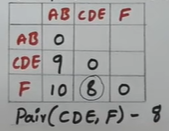 AB CDE F
AB 0
CDE 9 0
F 10 8 0
Pair(CDE, F) - 8